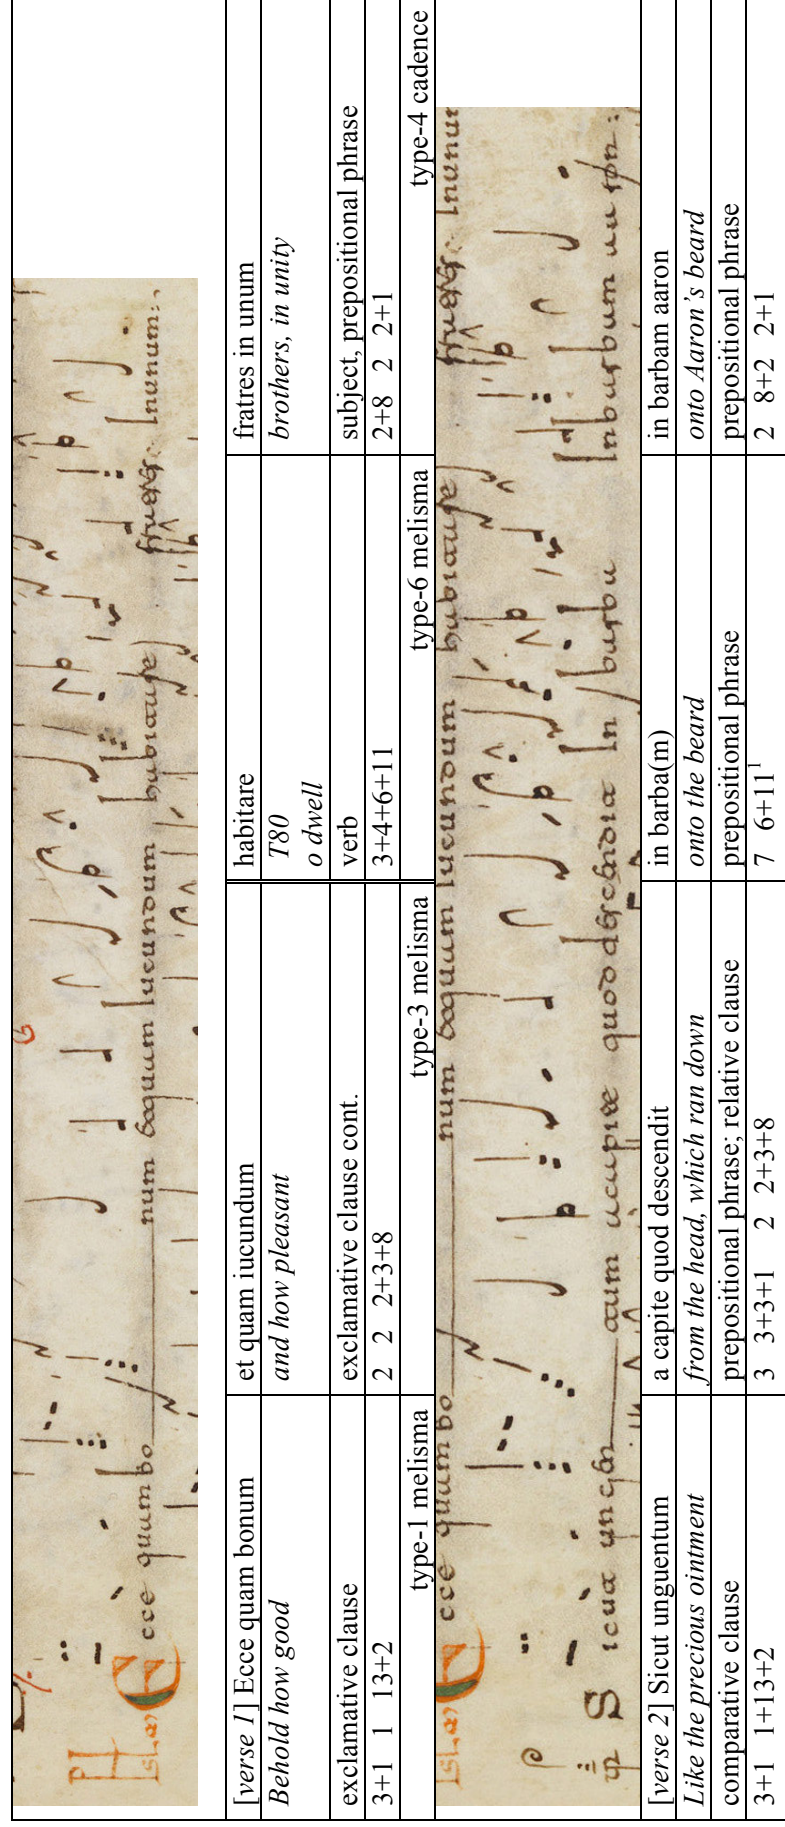 Ecce quam bo num &quam iucundum habitare fratres Inunum:
[verse 1] Ecce quam bonum et quam iucundum habitare fratres in unum
Behold how good and how pleasant T80 brothers, in unity
o dwell
exclamative clause exclamative clause cont. verb subject, prepositional phrase
3+1 1 13+2 2 2 2+3+8 3+4+6+11 2+8 2 2+1
type-1 melisma type-3 melisma type-6 melisma type-4 cadence
Ecce quam bo num &quam iucundum habitare fratres Inunum
Sicut ungen tum acapite quod descendit In barba Inbarbam aaron:
[verse 2] Sicut unguentum a capite quod descendit in barba(m) in barbam aaron
Like the precious ointment from the head, which ran down onto the beard onto Aaron's beard
comparative clause prepositional phrase; relative clause prepositional phrase prepositional phrase
3+1 1+13+2 3 3+3+1 2 2+3+8 7 6+11¹ 2 8+2 2+1